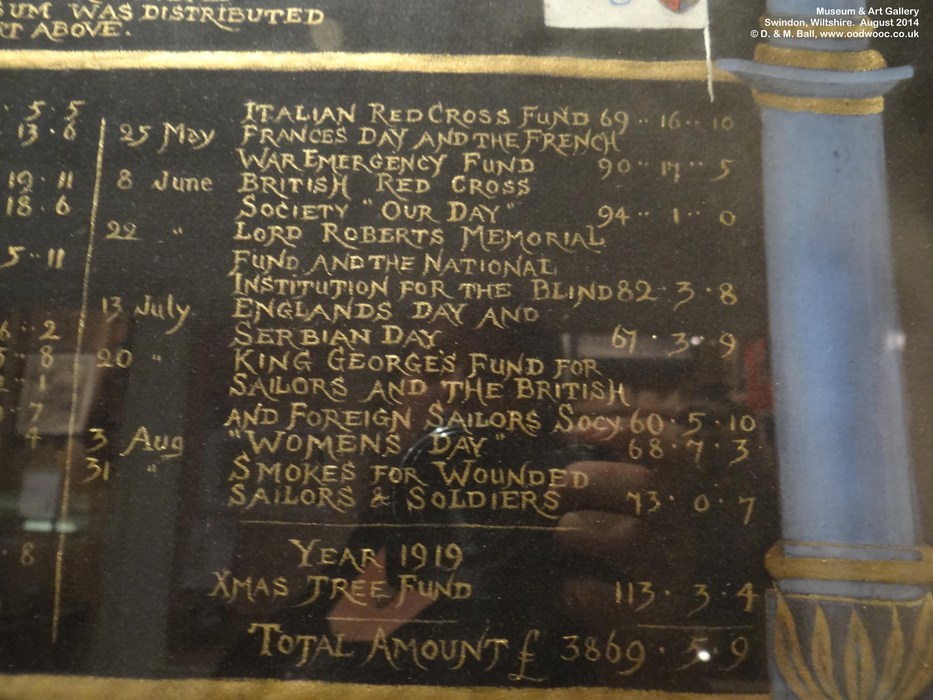 Museum & Art Gallery
Swindon, Wiltshire. August 2014
© D. & M. Ball, www.oodwooc.co.uk
SUM WAS DISTRIBUTED
RT ABOVE.
5 · 5
13 · 6
19 · 11
18 · 6
5 ·· 11
6 ·· 2
5 · 8
1
7
4
8
25 May ITALIAN RED CROSS FUND 69 ·· 16 ·· 10
FRANCES DAY AND THE FRENCH
WAR EMERGENCY FUND 90 ·· 17 ·· 5
8 June BRITISH RED CROSS
SOCIETY "OUR DAY" 94 ·· 1 ·· 0
22 " LORD ROBERTS MEMORIAL
FUND AND THE NATIONAL
INSTITUTION FOR THE BLIND 82 · 3 · 8
13 July ENGLANDS DAY AND
SERBIAN DAY 67 · 3 · 9
20 " KING GEORGE'S FUND FOR
SAILORS AND THE BRITISH
AND FOREIGN SAILORS SOCY. 60 · 5 · 10
3 Aug "WOMENS DAY" 68 · 7 · 3
31 " SMOKES FOR WOUNDED
SAILORS & SOLDIERS 73 · 0 · 7
YEAR 1919
XMAS TREE FUND 113 · 3 · 4
TOTAL AMOUNT £ 3869 · 5 · 9